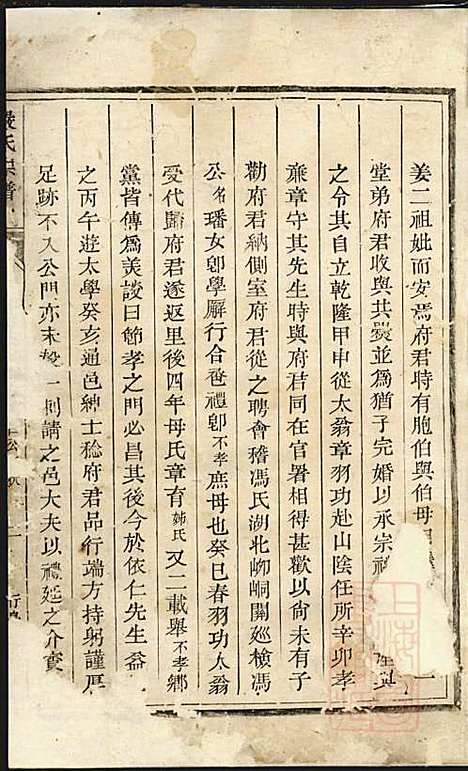 姜二祖妣而安焉府君時有胞伯與伯母
堂弟府君收與其爨並為猶子完婚以承宗祧 與
之令其自立乾隆甲申從太翁章羽功赴山陰任所辛卯孝
亷章守其先生時與府君同在官署相得甚歡以尙未有子
勸府君納側室府君從之聘會稽馮氏湖北峒關廵檢馮
公名璠女卽學廨行合卺禮卽不孝庶母也癸巳春羽功太翁
受代歸府君遂返里後四年母氏章育姊氏又二載舉不孝鄉
黨皆傳爲美談曰節孝之門必昌其後今於依仁先生益
之丙午遊太學癸亥通邑紳士稔府君品行端方持躬謹厚
足跡不入公門亦未 一 請之邑大夫以禮延之介賓
氏宗譜